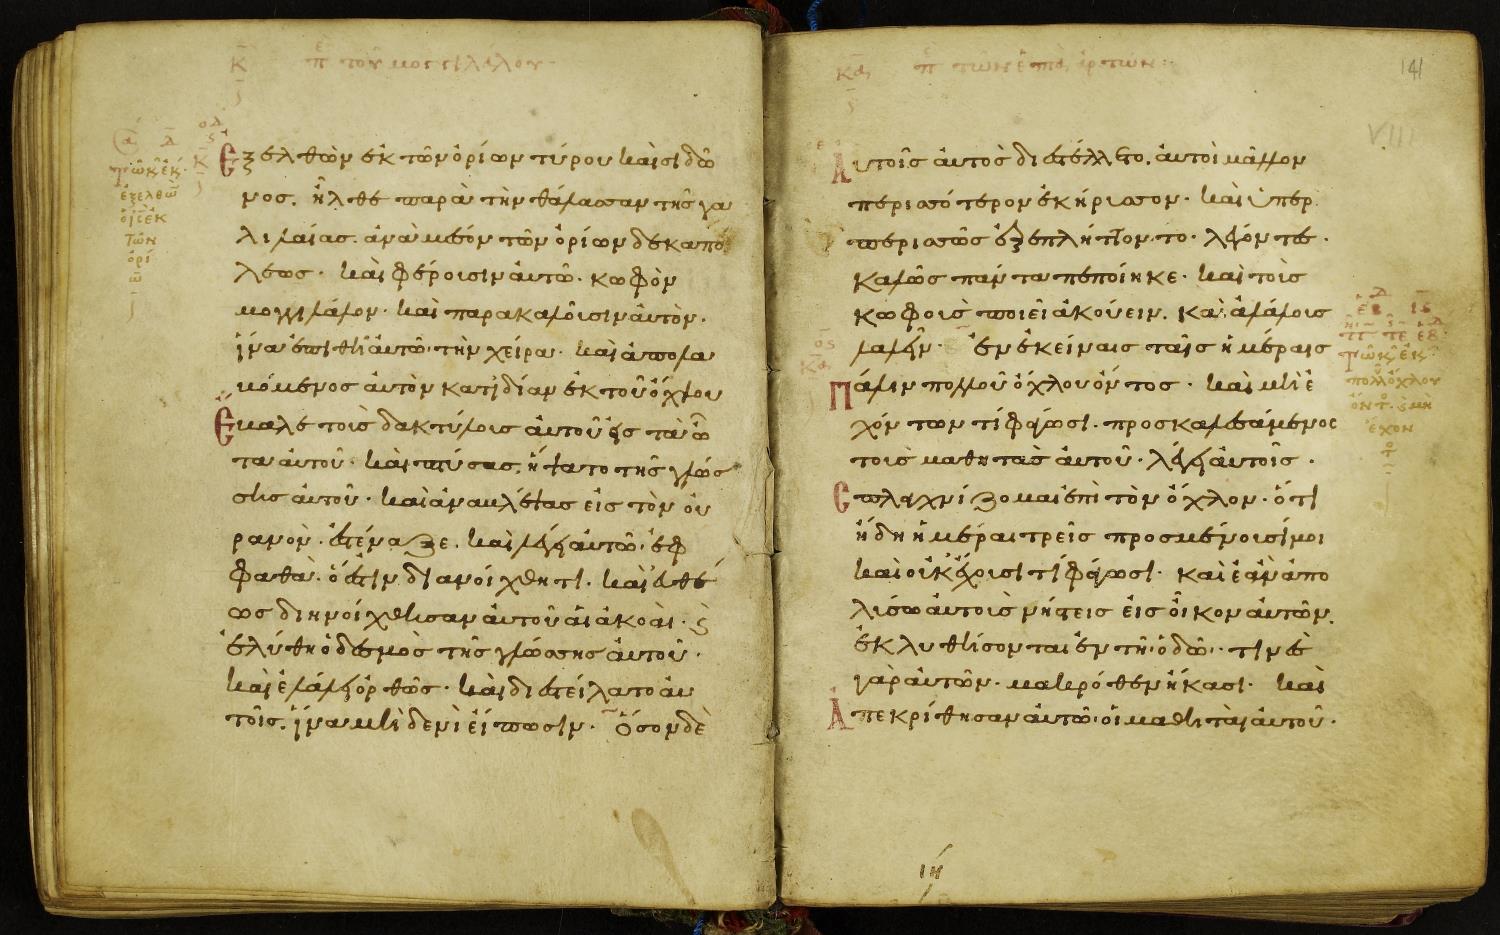 περὶ τοῦ μογγιλάλου
ἐξελθὼν ἐκ τῶν ὁρίων τύρου καὶ σιδῶ
νος. ἦλθε παρὰ τὴν θάλασσαν τῆς γα
λιλαίας. ἀνὰ μέσον τῶν ὁρίων δεκαπό
λεως· καὶ φέροισιν ἀυτῶ· κωφὸν
μογγιλάλον· καὶ παρακαλοῖσιν ἀυτὸν.
ἵνα ἐπιθῆ ἀυτῶ· τὴν χείρα· καὶ ἀπολα
βόμενος ἀυτὸν κατιδίαν ἐκ τοῦ ὄχλου
ἔβαλε τοὶς δακτύλοις ἀυτοῦ εἰς τὰ ὦ
τα ἀυτοῦ· καὶ πτύσας. ἥψατο τῆς γλώσ
σης ἀυτοῦ· καὶ ἀναβλέψας εἰς τὸν οὐ
ρανὸν. ἐστέναζε. καὶ λέγει ἀυτῶ· ἐφ
φαθὰ. ὅ ἐστιν διανοίχθητι. καὶ ἐυθέ
ως διηνοίχθησαν ἀυτοῦ ἁι ἀκοὰι· ϗ
ἐλύθη ὁ δεσμὸς τῆς γλώσσης ἀυτοῦ·
καὶ ἐλάλει ὀρθῶς· καὶ διεστείλατο ἀυ
τοῖς. ἵνα μηδενὶ εἴπωσιν· ὅσον δὲ
τῶν ἑπτὰ ἄρτων
141
VIII
Ἀυτοῖς ἀυτὸς διεστέλλετο. ἀυτοὶ μᾶλλον
περισσότερον ἐκήρισσον· καὶ ὑπερ
περισσῶς ἐξεπλήττοντο· λέγοντες·
καλῶς πάντα πεποίηκε· καὶ τοὶς
κωφοὶς ποιεῖ ἀκούειν. καὶ ἀλάλοις
λαλεῖν· ἐν ἐκείναις ταῖς ἡμέραις
πάλιν πολλοῦ ὄχλου ὄντος· καὶ μὴ ἐ
χόντων τί φάγωσι. προσκαλεσάμενος
τοὶς μαθητὰς ἀυτοῦ· λέγει ἀυτοῖς·
σπλαχνίζομαι ἐπὶ τὸν ὄχλον· ὅτι
ἤδη ἡμέραι τρεῖς προσμένοισί μοι
καὶ οὐκ ἔχοισι τί φάγωσι· καὶ ἐὰν ἀπο
λύσω ἀυτοὶς νήστεις εἰς οἶκον ἀυτῶν.
ἐκλυθήσονται ἐν τῆ ὁδῶ· τινὲς
γὰρ ἀυτῶν· μακρόθεν ἥκασι· καὶ
ἀπεκρίθησαν ἀυτῶ· οἱ μαθηταὶ ἀυτοῦ·
ιη